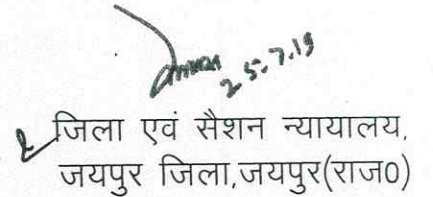 25.7.19
जिला एवं सैशन न्यायालय,
जयपुर जिला,जयपुर(राज0)